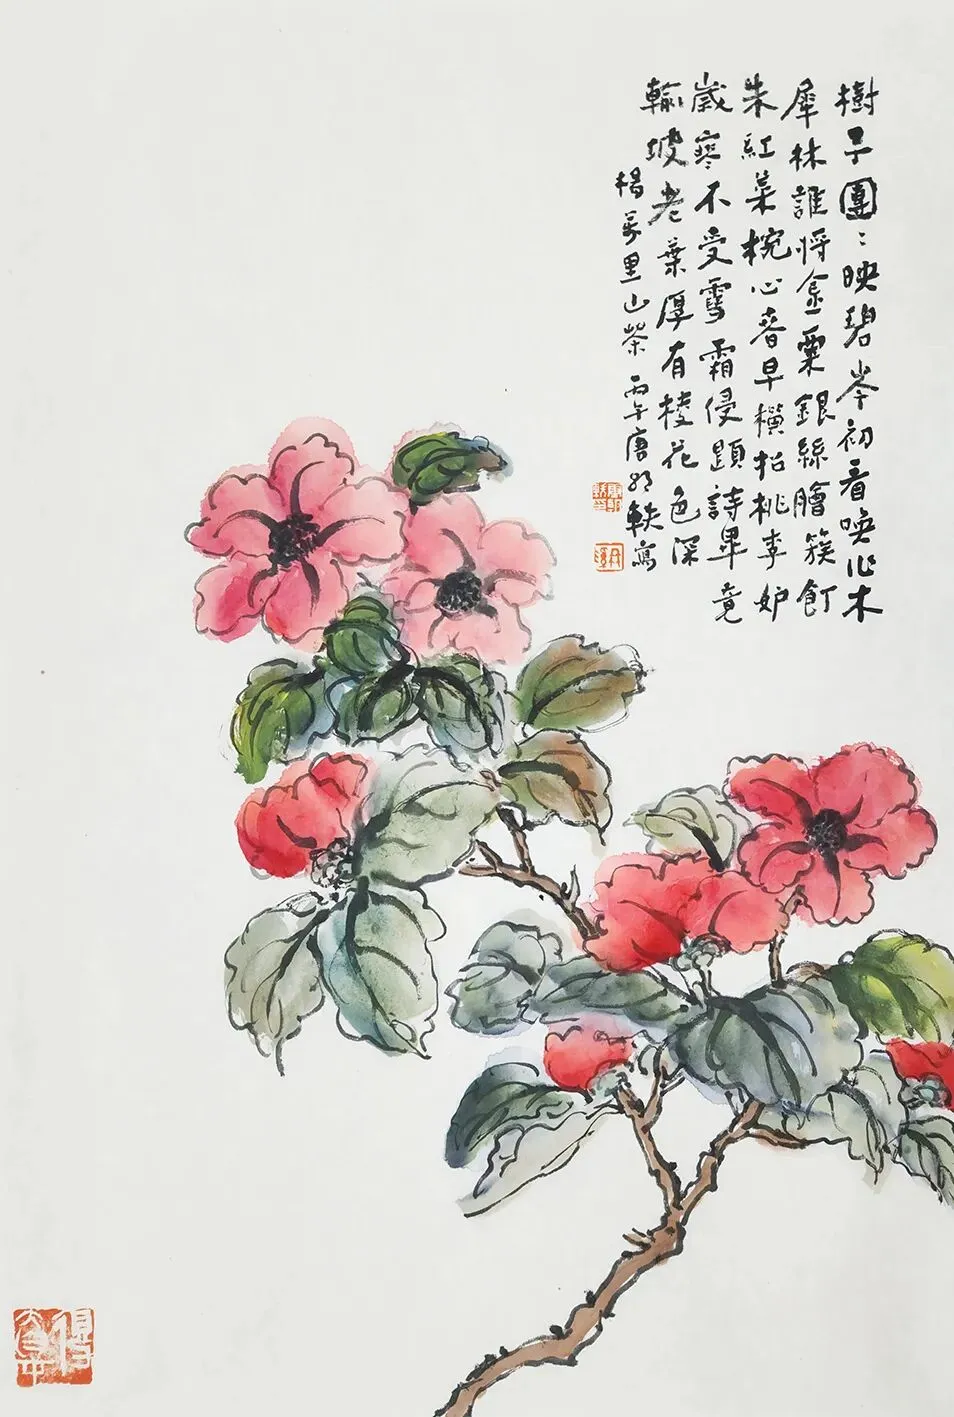 樹子團〻映碧岑初看喚作木
犀林誰將金粟銀絲膾簇飣
朱紅菜椀心春早橫招桃李妒
歲寒不受雪霜侵題詩畢竟
輸坡老葉厚有棱花色深
楊萬里山茶 丙午唐軼寫